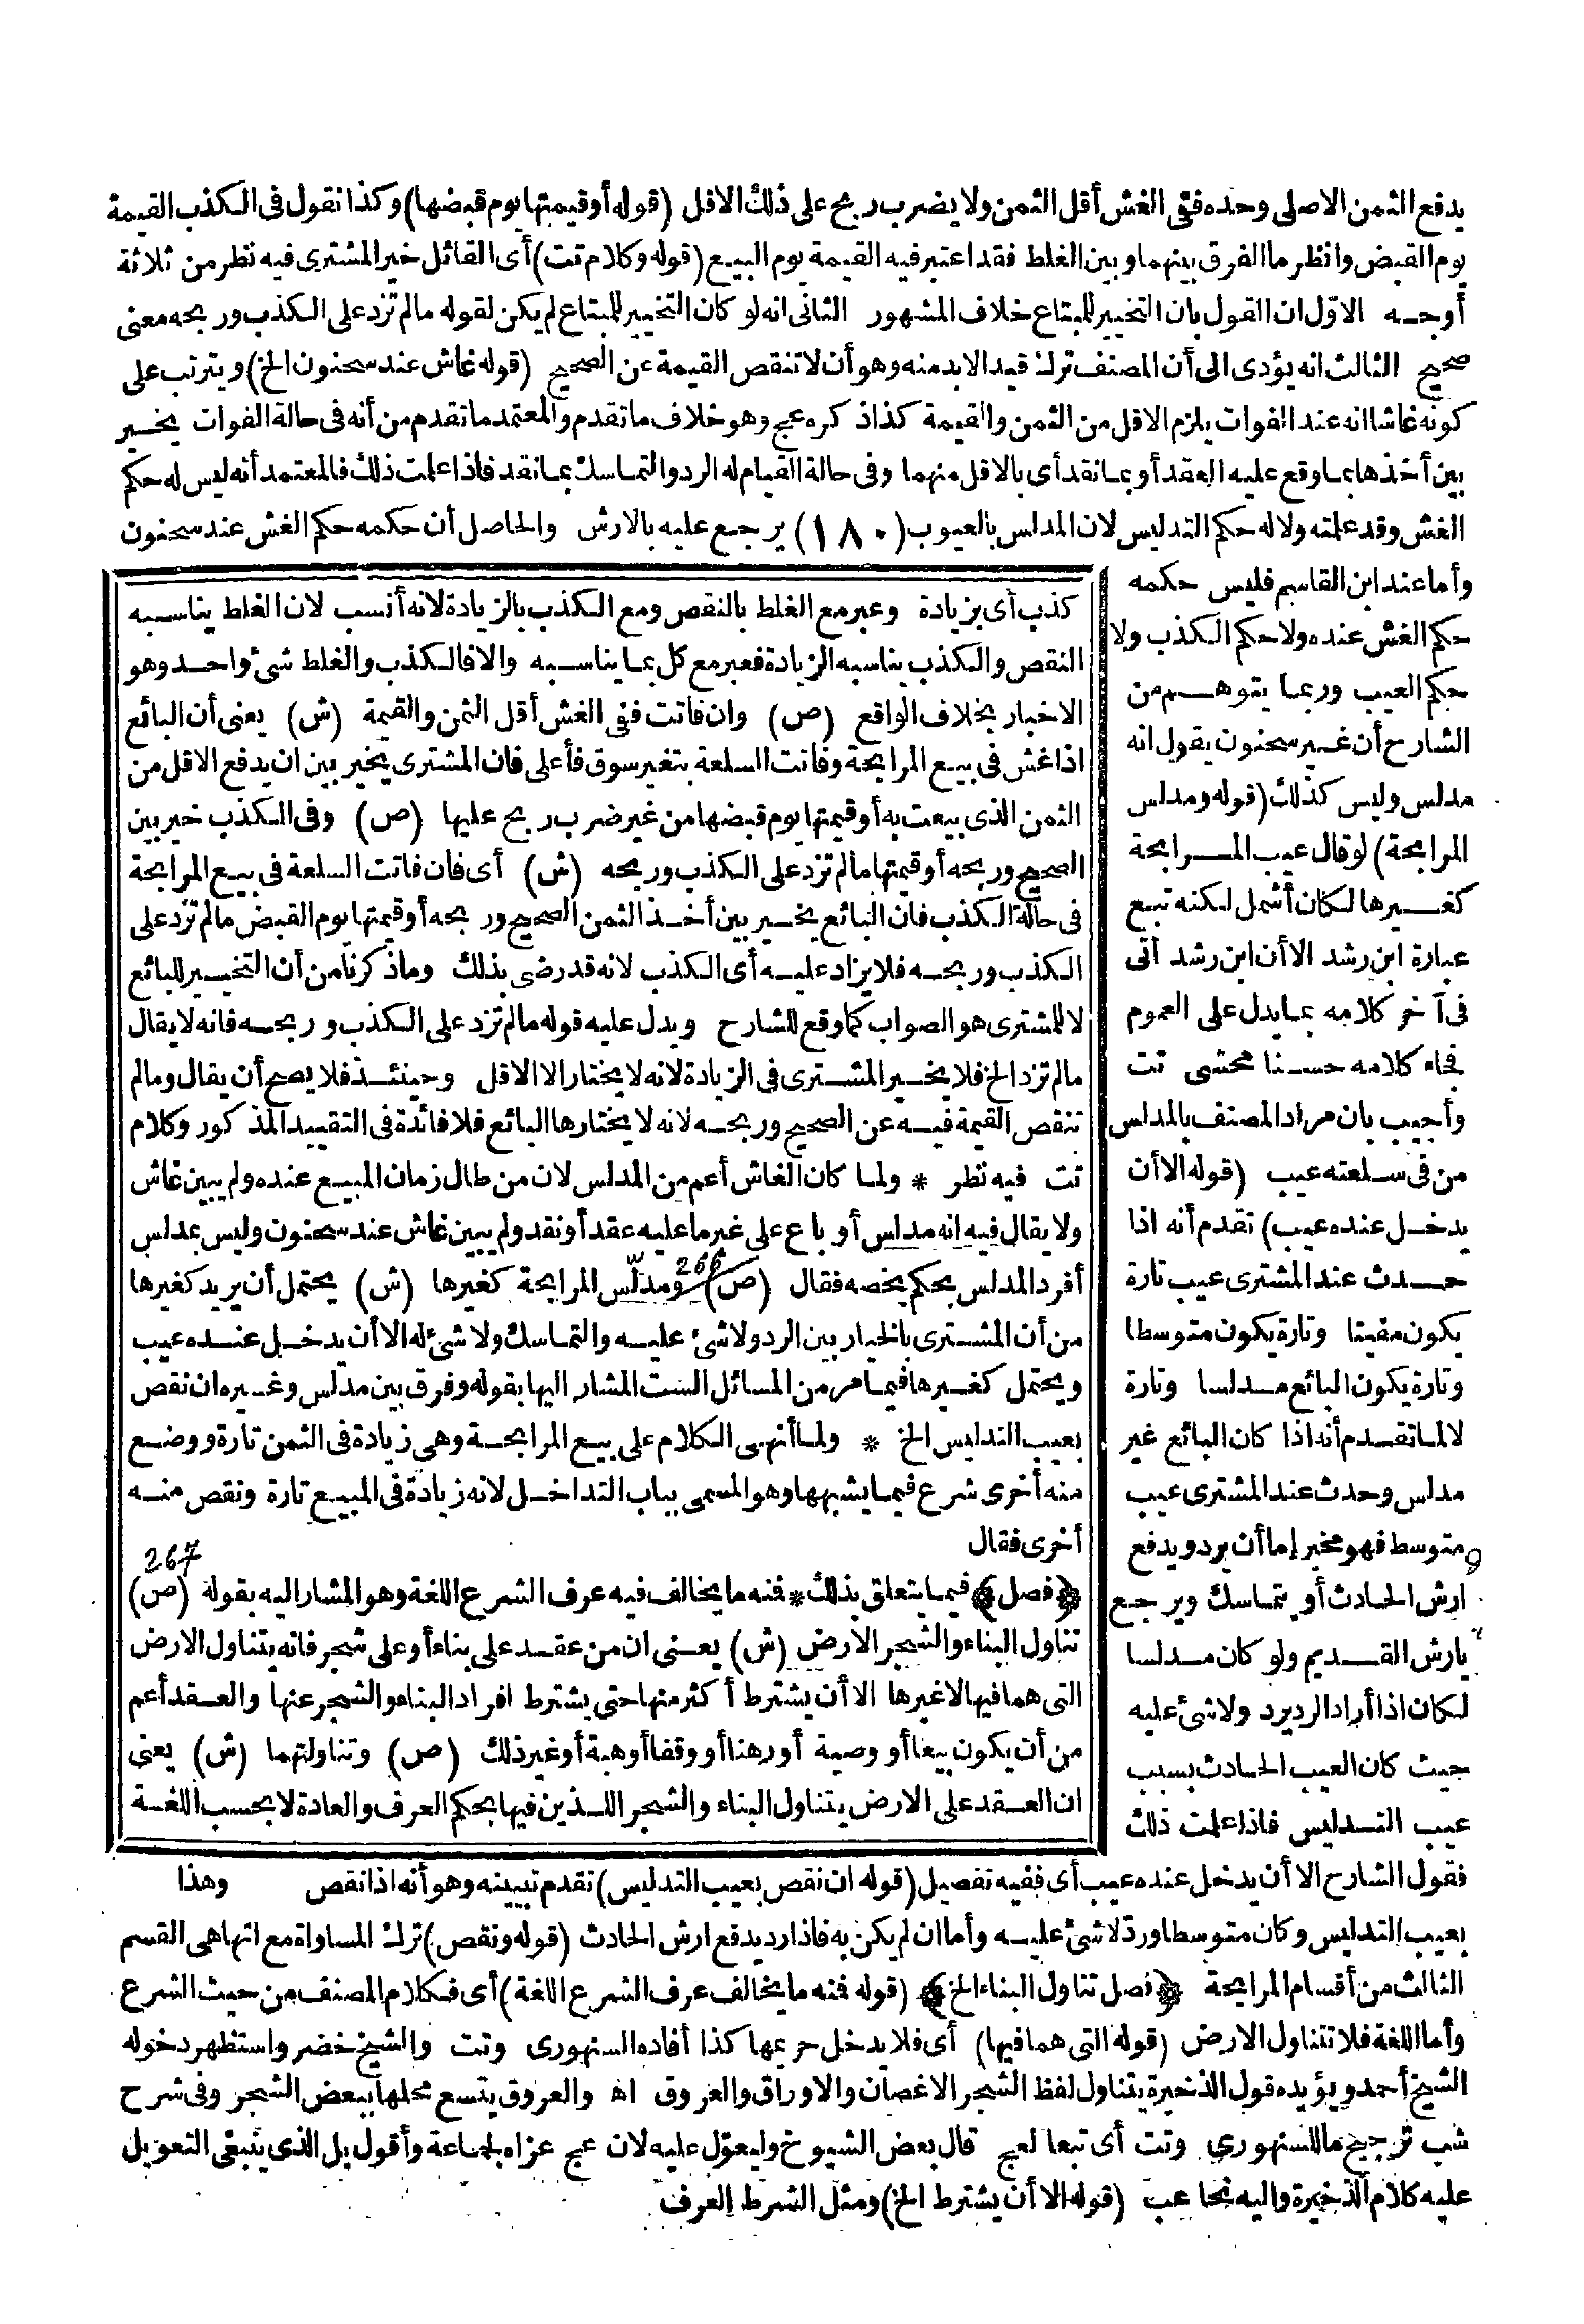 يدفع الثمن الاصلى وحده ففى الغش أقل الثمن ولا يضرب ربح على ذلك الاقل (قوله أو قيمتها يوم قبضها) وكذا نقول فى الكذب القيمة
يوم القبض وانظر ما الفرق بينهما وبين الغلط فقد اعتبر فيه القيمة يوم البيع (قوله وكلام تت) أى القائل خير المشترى فيه نظر من ثلاثة
أوجه الاوّل ان القول بان التخيير للمبتاع خلاف المشهور الثانى انه لو كان التخيير للمبتاع لم يكن لقوله مالم تزد على الكذب وربحه معنى
صحيح الثالث انه يؤدى الى أن المصنف ترك قيد الابد منه وهو أن لا تنقص القيمة عن الصحيح (قوله غاش عند سحنون الخ) ويترتب على
كونه غاشا انه عند الفوات يلزم الاقل من الثمن والقيمة كذا ذكره عج وهو خلاف ما تقدم والمعتمد ما تقدم من أنه فى حالة الفوات يخير
بين أخذها بما وقع عليه العقد أو بما نقد أى بالاقل منهما وفى حالة القيام له الرد والتماسك بما نقد فاذا علمت ذلك فالمعتمد أنه ليس له حكم
الغش وقد علمته ولا له حكم التدليس لان المدلس بالعيوب (١٨٠) يرجع عليه بالارش والحاصل أن حكمه حكم الغش عند سحنون
وأما عند ابن القاسم فليس حكمه
حكم الغش عنده ولا حكم الكذب ولا
حكم العيب وربما يتوهم من
الشارح أن غير سحنون يقول انه
مدلس وليس كذلك (قوله ومدلس
المرابحة) لو قال عيب المرابحة
كغيرها لكان أشمل لكنه تبع
عبارة ابن رشد الا أن ابن رشد أتى
فى آخر كلامه بما يدل على العموم
فجاء كلامه حسنا محشى تت
وأجيب بان مراد المصنف بالمدلس
من فى سلعته عيب (قوله الا أن
يدخل عنده عيب) تقدم أنه اذا
حدث عند المشترى عيب تارة
يكون مفيتا وتارة يكون متوسطا
وتارة يكون البائع مدلسا وتارة
لا لما تقدم أنه اذا كان البائع غير
مدلس وحدث عند المشترى عيب
متوسط فهو مخير إما أن يرد ويدفع
ارش الحادث أو يتماسك ويرجع
بارش القديم ولو كان مدلسا
لكان اذا أراد الرد يرد ولا شئ عليه
حيث كان العيب الحادث بسبب
عيب التدليس فاذا علمت ذلك
كذب أى بزيادة وعبر مع الغلط بالنقص ومع الكذب بالزيادة لانه أنسب لان الغلط يناسبه
النقص والكذب يناسبه الزيادة فعبر مع كل بما يناسبه والا فالكذب والغلط شئ واحد وهو
الاخبار بخلاف الواقع (ص) وان فاتت ففى الغش أقل الثمن والقيمة (ش) يعنى أن البائع
اذا غش فى بيع المرابحة وفاتت السلعة بتغير سوق فأعلى فان المشترى يخير بين ان يدفع الاقل من
الثمن الذى بيعت به أو قيمتها يوم قبضها من غير ضرب ربح عليها (ص) وفى الكذب خير بين
الصحيح وربحه أو قيمتها مالم تزد على الكذب وربحه (ش) أى فان فاتت السلعة فى بيع المرابحة
فى حالة الكذب فان البائع يخير بين أخذ الثمن الصحيح وربحه أو قيمتها يوم القبض مالم تزد على
الكذب وربحه فلا يزاد عليه أى الكذب لانه قد رضى بذلك وما ذكرنا من أن التخيير للبائع
لا للمشترى هو الصواب كما وقع للشارح ويدل عليه قوله مالم تزد على الكذب وربحه فانه لا يقال
مالم تزد الخ فلا يخير المشترى فى الزيادة لانه لا يختار الا الاقل وحينئذ فلا يصح أن يقال ومالم
تنقص القيمة فيه عن الصحيح وربحه لانه لا يختارها البائع فلا فائدة فى التقييد المذكور وكلام
تت فيه نظر * ولما كان الغاش أعم من المدلس لان من طال زمان المبيع عنده ولم يبين غاش
ولا يقال فيه انه مدلس أو باع على غير ما عليه عقد أو نقد ولم يبين غاش عند سحنون وليس بمدلس
266
أفرد المدلس بحكم يخصه فقال (ص) ومدلّس المرابحة كغيرها (ش) يحتمل أن يريد كغيرها
من أن المشترى بالخيار بين الرد ولا شئ عليه والتماسك ولا شئ له الا أن يدخل عنده عيب
ويحتمل كغيرها فيما مر من المسائل الست المشار اليها بقوله وفرق بين مدلس وغيره ان نقص
بعيب التدليس الخ * ولما أنهى الكلام على بيع المرابحة وهى زيادة فى الثمن تارة ووضع
منه أخرى شرع فيما يشبهها وهو المسمى بباب التداخل لانه زيادة فى المبيع تارة ونقص منه
أخرى فقال
267
﴿فصل﴾ فيما يتعلق بذلك * فنه ما يخالف فيه عرف الشرع اللغة وهو المشار اليه بقوله (ص)
تناول البناء والشجر الارض (ش) يعنى ان من عقد على بناء أو على شجر فانه يتناول الارض
التى هما فيها لا غيرها الا أن يشترط أكثر منها حتى يشترط افراد البناء والشجر عنها والعقد أعم
من أن يكون بيعا أو وصية أو رهنا أو وقفا أو هبة أو غير ذلك (ص) وتناولتهما (ش) يعنى
ان العقد على الارض يتناول البناء والشجر اللذين فيها بحكم العرف والعادة لا بحسب اللغة
وهذا
فقول الشارح الا أن يدخل عنده عيب أى ففيه تفصيل (قوله ان نقص بعيب التدليس) تقدم تبيينه وهو أنه اذا نقص
بعيب التدليس وكان متوسطا ورد لا شئ عليه وأما ان لم يكن به فاذا رد يدفع ارش الحادث (قوله ونقص) ترك المساواة مع انها هى القسم
الثالث من أقسام المرابحة ﴿فصل تناول البناء الخ﴾ (قوله فنه ما يخالف عرف الشرع اللغة) أى فكلام المصنف من حيث الشرع
وأما اللغة فلا تتناول الارض (قوله التى هما فيها) أى فلا يدخل حريمها كذا أفاده السنهورى وتت والشيخ خضر واستظهر دخوله
الشيخ أحمد ويؤيده قول الذخيرة يتناول لفظ الشجر الاغصان والاوراق والعروق اه والعروق يتسع محلها ببعض الشجر وفى شرح
شب ترجيح ما للسنهورى وتت أى تبعا لعج قال بعض الشيوخ وليعوّل عليه لان عج عزاه لجماعة وأقول بل الذى ينبغى التعويل
عليه كلام الذخيرة واليه نحا عب (قوله الا أن يشترط الخ) ومثل الشرط العرف